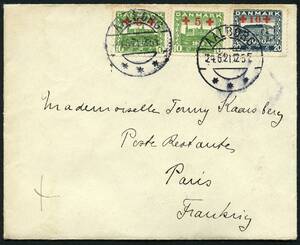 DANMARK DANMARK DANMARK
+ 5 + + 10 +
10 10 20
AALBORG
24.6.21.12-5 E
Mademoiselle Tonny Kaarsberg
Poste Restantes
Paris
Frankrig